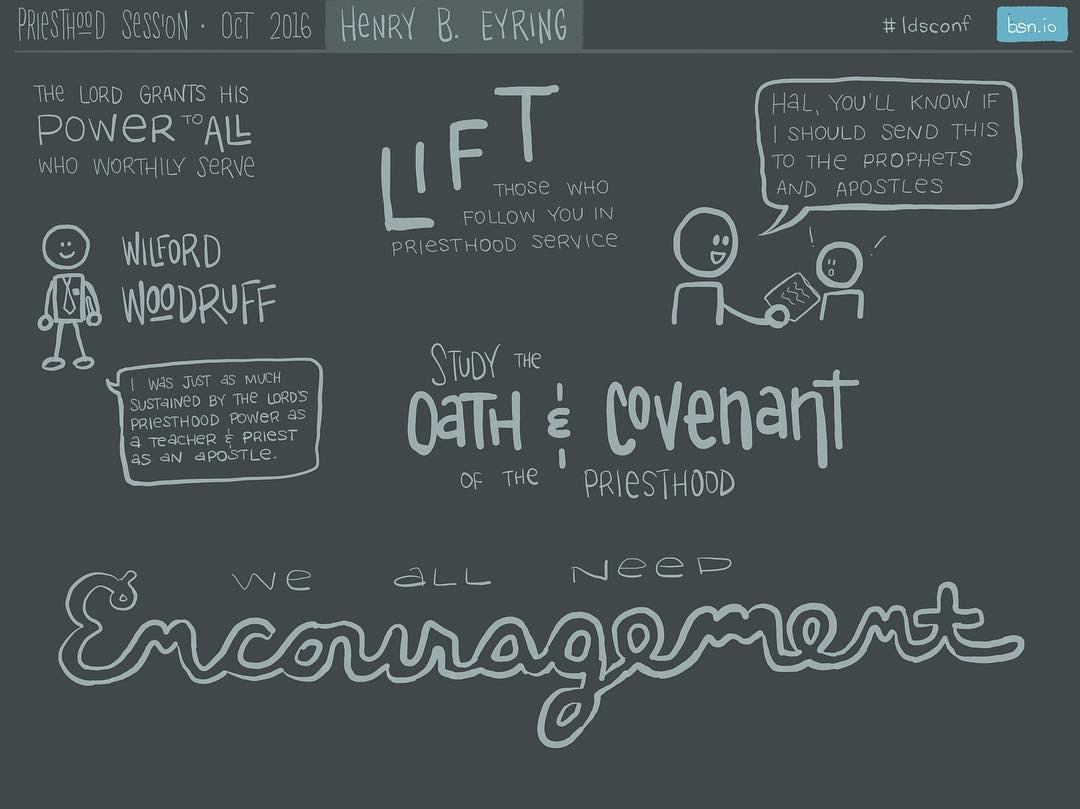 PRIESTHOOD SESSION · OCT 2016
HENRY B. EYRING
#ldsconf
bsn.io
THE LORD GRANTS HIS
POWER TO ALL
WHO WORTHILY SERVE
LIFT
THOSE WHO
FOLLOW YOU IN
PRIESTHOOD SERVICE
HAL, YOU'LL KNOW IF
I SHOULD SEND THIS
TO THE PROPHETS
AND APOSTLES
WILFORD
WOODRUFF
I WAS JUST AS MUCH
SUSTAINED BY THE LORD'S
PRIESTHOOD POWER AS
A TEACHER & PRIEST
AS AN APOSTLE.
STUDY THE
OATH & COVENANT
OF THE PRIESTHOOD
WE ALL NEED
Encouragement